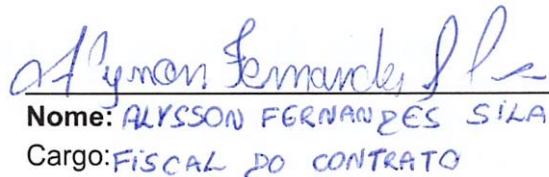 Alysson Fernandes Silva
Nome: ALYSSON FERNANDES SILA
Cargo: FISCAL DO CONTRATO